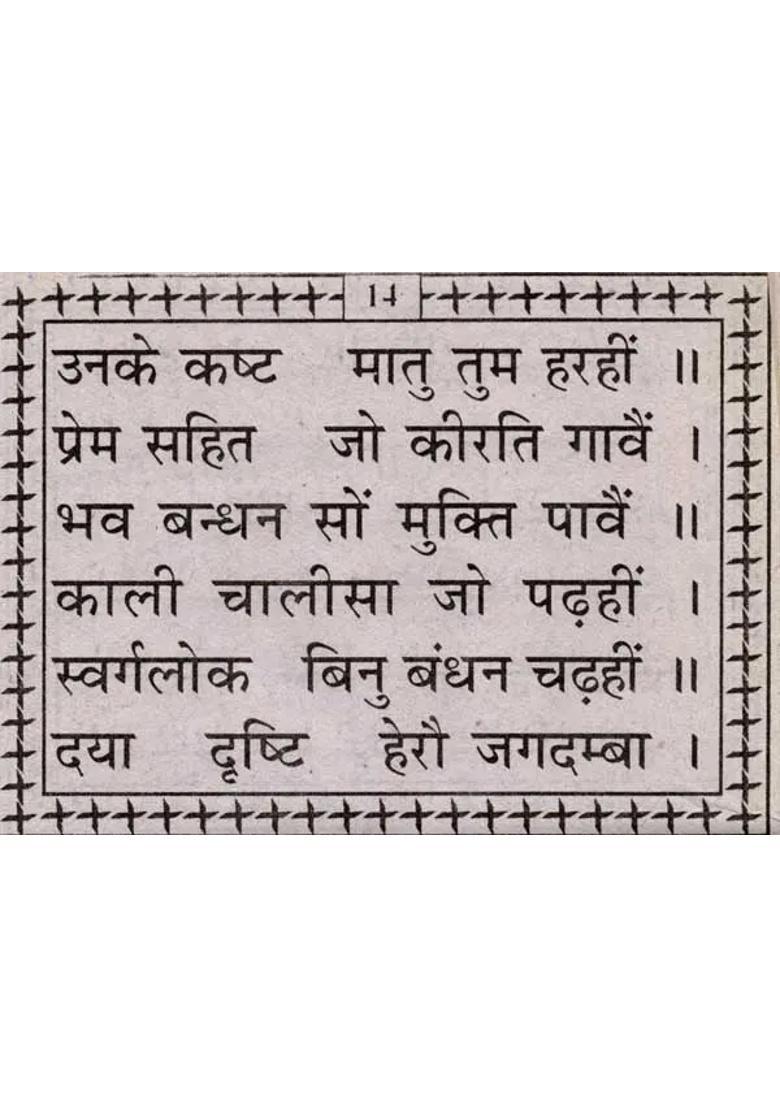 14
उनके कष्ट मातु तुम हरहीं ॥
प्रेम सहित जो कीरति गावैं ।
भव बन्धन सों मुक्ति पावैं ॥
काली चालीसा जो पढ़हीं ।
स्वर्गलोक बिनु बंधन चढ़हीं ॥
दया दृष्टि हेरौ जगदम्बा ।